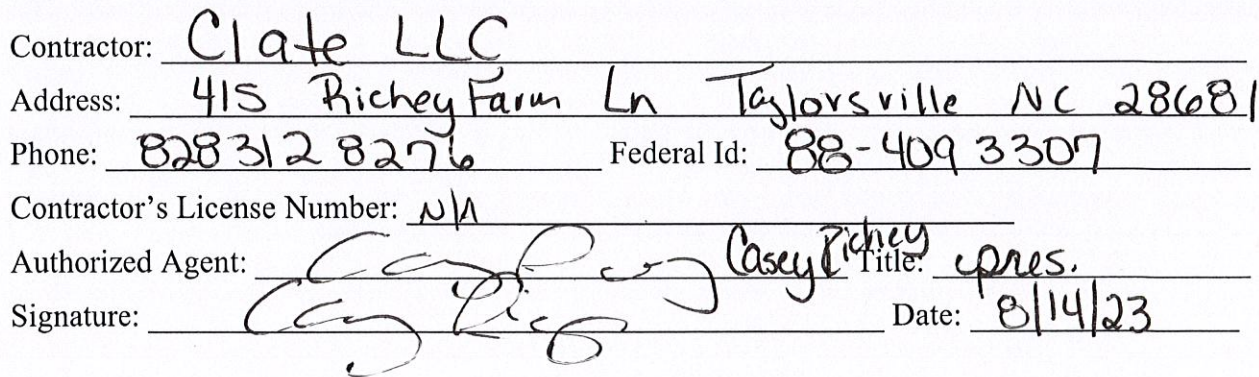 Contractor: Clate LLC
Address: 415 Richey Farm Ln Taylorsville NC 28681
Phone: 828 312 8276 Federal Id: 88-409 3307
Contractor's License Number: N/A
Authorized Agent: Casey Richey Title: pres.
Signature: Date: 8/14/23